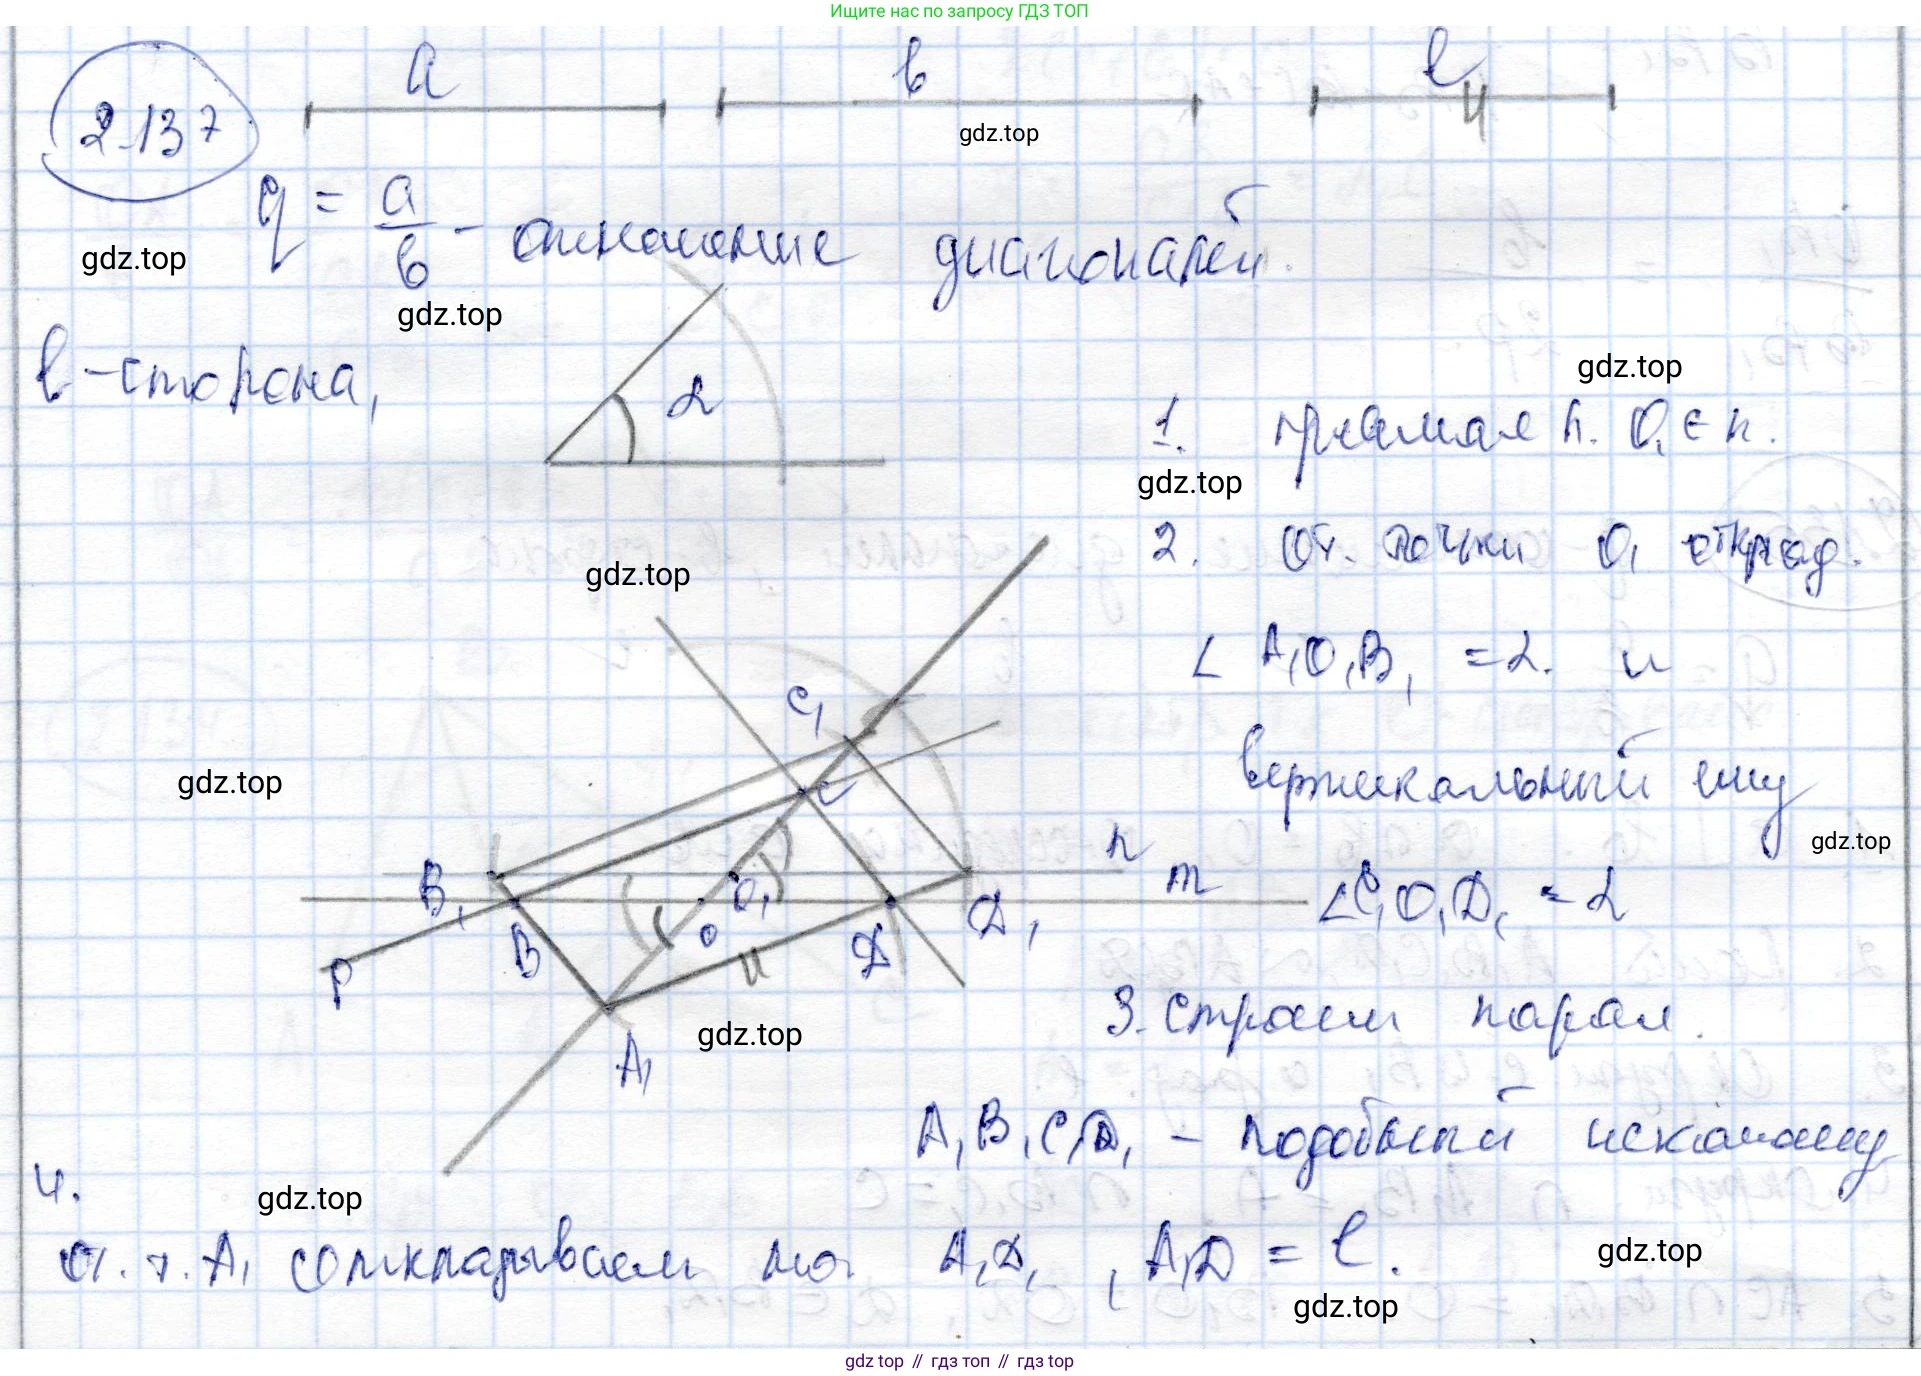 Ищите нас по запросу ГДЗ ТОП
a b l
2.137
gdz.top
q = a/b - отношение диагоналей.
gdz.top
gdz.top
l - сторона,
α
gdz.top
1. прямая n. O₁ ∈ n.
gdz.top
2. От. точки O₁ отклад.
gdz.top
∠ A₁O₁B₁ = α. и
C₁
вертикальный ему
gdz.top
C
gdz.top
n
m
B₁
O₁
D₁
∠C₁O₁D₁ = α
P B O D
3. Строим парал.
gdz.top
A₁
A₁B₁C₁D₁ - подобный искомому
4.
gdz.top
от. т. A₁ откладываем на A₁D₁, A₁D = l.
gdz.top
gdz.top
gdz top // гдз топ // гдз top